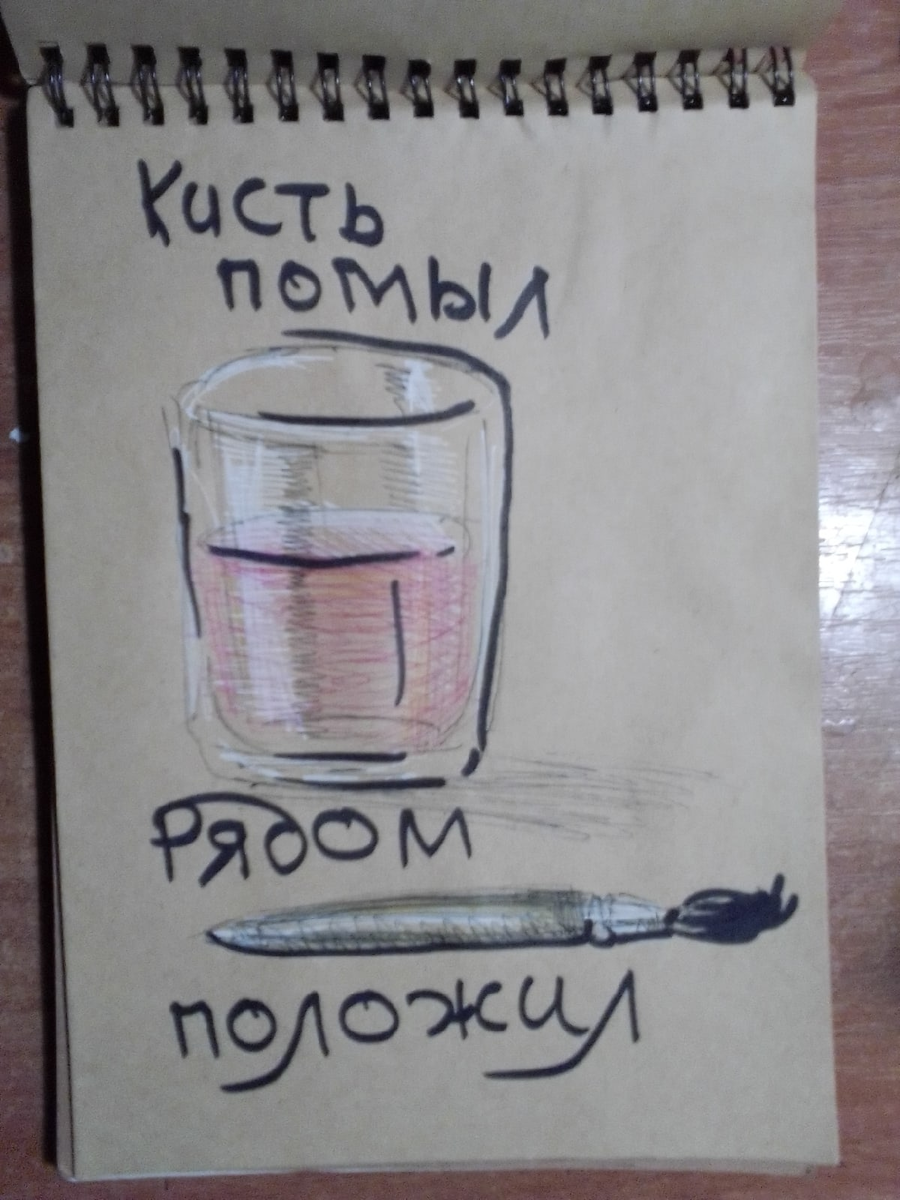 Кисть
помыл
Рядом
положил